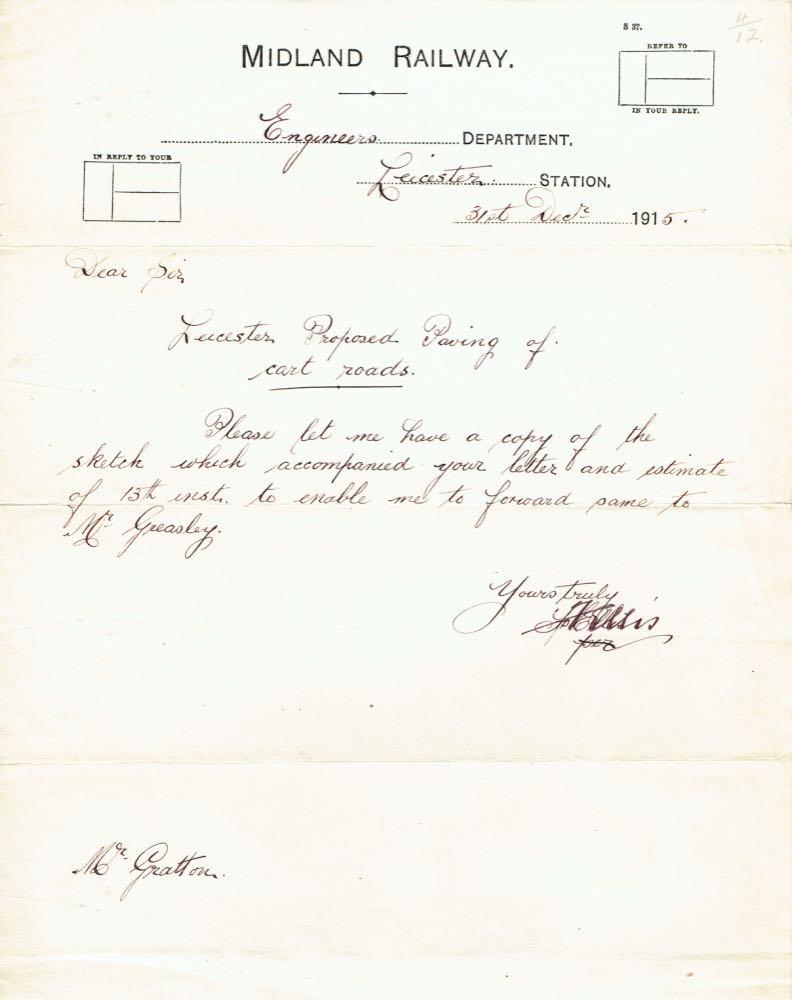 S 37.
4/12
MIDLAND RAILWAY.
REFER TO
IN YOUR REPLY.
Engineers DEPARTMENT,
IN REPLY TO YOUR
Leicester. STATION,
31st Decr 1915.
Dear Sir,
Leicester Proposed Paving of
cart roads.
Please let me have a copy of the
sketch which accompanied your letter and estimate
of 13th inst. to enable me to forward same to
Mr Greasley.
Yours truly
Ellis
per
Mr Gratton.